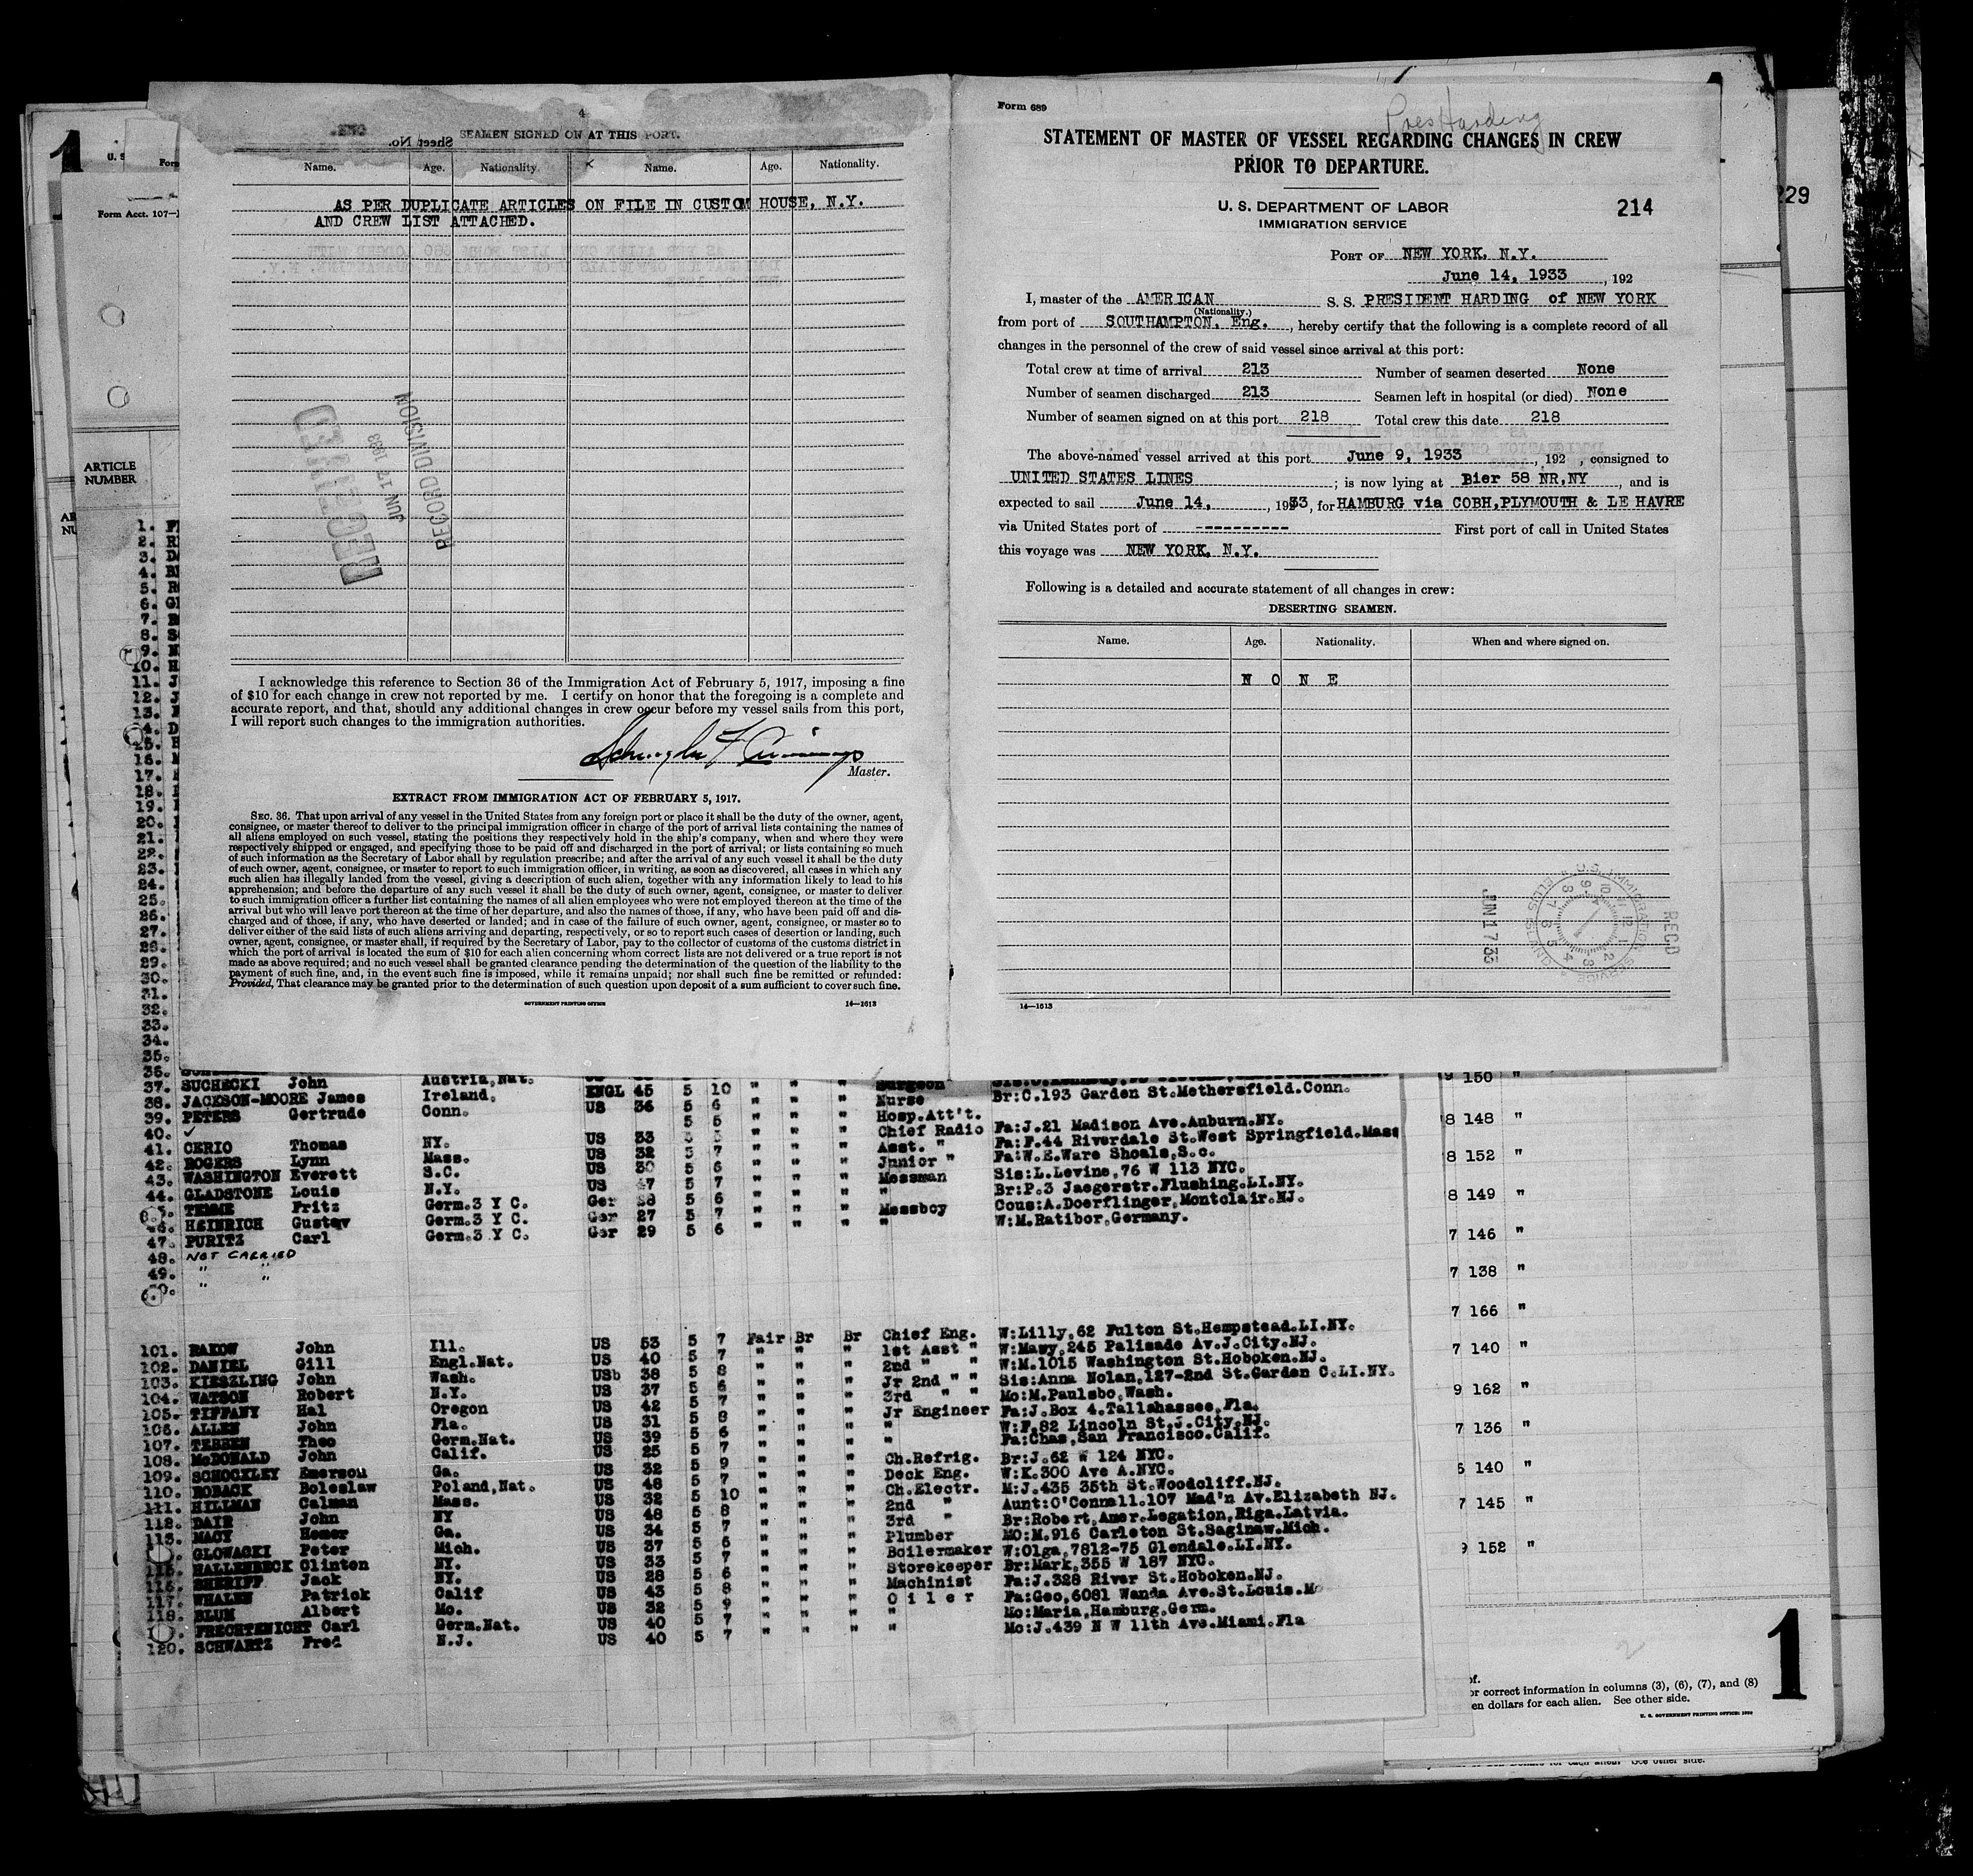 4
SEAMEN SIGNED ON AT THIS PORT.
Sheet No.
Name. Age. Nationality. Name. Age. Nationality.
AS PER DUPLICATE ARTICLES ON FILE IN CUSTOM HOUSE, N.Y.
AND CREW LIST ATTACHED.
RECEIVED
JUN 17 1933
RECORD DIVISION
I acknowledge this reference to Section 36 of the Immigration Act of February 5, 1917, imposing a fine
of $10 for each change in crew not reported by me. I certify on honor that the foregoing is a complete and
accurate report, and that, should any additional changes in crew occur before my vessel sails from this port,
I will report such changes to the immigration authorities.
Master.
EXTRACT FROM IMMIGRATION ACT OF FEBRUARY 5, 1917.
SEC. 36. That upon arrival of any vessel in the United States from any foreign port or place it shall be the duty of the owner, agent,
consignee, or master thereof to deliver to the principal immigration officer in charge of the port of arrival lists containing the names of
all aliens employed on such vessel, stating the positions they respectively hold in the ship's company, when and where they were
respectively shipped or engaged, and specifying those to be paid off and discharged in the port of arrival; or lists containing so much
of such information as the Secretary of Labor shall by regulation prescribe; and after the arrival of any such vessel it shall be the duty
of such owner, agent, consignee, or master to report to such immigration officer, in writing, as soon as discovered, all cases in which any
such alien has illegally landed from the vessel, giving a description of such alien, together with any information likely to lead to his
apprehension; and before the departure of any such vessel it shall be the duty of such owner, agent, consignee, or master to deliver
to such immigration officer a further list containing the names of all alien employees who were not employed thereon at the time of the
arrival but who will leave port thereon at the time of her departure, and also the names of those, if any, who have been paid off and dis-
charged and of those, if any, who have deserted or landed; and in case of the failure of such owner, agent, consignee, or master so to
deliver either of the said lists of such aliens arriving and departing, respectively, or so to report such cases of desertion or landing, such
owner, agent, consignee, or master shall, if required by the Secretary of Labor, pay to the collector of customs of the customs district in
which the port of arrival is located the sum of $10 for each alien concerning whom correct lists are not delivered or a true report is not
made as above required; and no such vessel shall be granted clearance pending the determination of the question of the liability to the
payment of such fine, and, in the event such fine is imposed, while it remains unpaid; nor shall such fine be remitted or refunded:
Provided, That clearance may be granted prior to the determination of such question upon deposit of a sum sufficient to cover such fine.
GOVERNMENT PRINTING OFFICE 14—1613
Form 689
Pres Harding
STATEMENT OF MASTER OF VESSEL REGARDING CHANGES IN CREW
PRIOR TO DEPARTURE.
U. S. DEPARTMENT OF LABOR
IMMIGRATION SERVICE
214
229
PORT OF NEW YORK, N.Y.
June 14, 1933, 192
I, master of the AMERICAN S. S. PRESIDENT HARDING of NEW YORK
(Nationality.)
from port of SOUTHAMPTON, Eng., hereby certify that the following is a complete record of all
changes in the personnel of the crew of said vessel since arrival at this port:
Total crew at time of arrival 213 Number of seamen deserted None
Number of seamen discharged 213 Seamen left in hospital (or died) None
Number of seamen signed on at this port 218 Total crew this date 218
The above-named vessel arrived at this port June 9, 1933, 192 , consigned to
UNITED STATES LINES; is now lying at Bier 58 NR,NY, and is
expected to sail June 14, 1933, for HAMBURG via COBH,PLYMOUTH & LE HAVRE
via United States port of ---------- First port of call in United States
this voyage was NEW YORK, N.Y.
Following is a detailed and accurate statement of all changes in crew:
DESERTING SEAMEN.
Name. Age. Nationality. When and where signed on.
N O N E
REC'D
U.S. IMMIGRATION SERVICE ELLIS ISLAND
JUN 17 33
14—1613
1
Form Acct. 107
ARTICLE
NUMBER
37. SUCHECKI John Austria,Nat. Surgeon
38. JACKSON-MOORE James Ireland. ENGL 45 5 10 " " " Nurse Br:C.193 Garden St.Methersfield.Conn.
39. PETERS Gertrude Conn. US 36 5 6 " " " Hosp.Att't.
40. ✓ 5 5 Chief Radio Fa:J.21 Madison Ave.Auburn.NY.
41. CERIO Thomas NY. US 33 " " " Asst. " Fa:F.44 Riverdale St.West Springfield.Mass
42. ROGERS Lynn Mass. US 32 5 7 " " " Junior " Fa:W.E.Ware Shoals,S.c.
43. WASHINGTON Everett S.C. US 30 5 6 " " " Messman Sis:L.Levine,76 W 113 NYC.
44. GLADSTONE Louis N.Y. US 47 5 7 " " " " Br:P.3 Jaegerstr.Flushing.LI.NY.
45. TEMME Fritz Germ.3 Y C. Ger 28 5 6 " " " Messboy Cous:A.Doerflinger,Montclair.NJ.
46. HEINRICH Gustav Germ.3 Y C. Ger 27 5 7 " " " " W:M.Ratibor,Germany.
47. PURITZ Carl Germ.3 Y C. Ger 29 5 6
48. NOT CARRIED
49. " "
50. "
101. RAKOW John Ill. US 53 5 7 Fair Br Br Chief Eng. W:Lilly,62 Fulton St.Hempstead.LI.NY.
102. DANIEL Gill Engl.Nat. US 40 5 7 " " " 1st Asst " W:Mary,245 Palisade Av.J.City.NJ.
103. KIESZLING John Wash. USb 38 5 8 " " " 2nd " " W:M.1015 Washington St.Hoboken.NJ.
104. WATSON Robert N.Y. US 37 5 6 " " " Jr 2nd " " Sis:Anna Nolan,127-2nd St.Garden C.LI.NY.
105. TIFFANY Hal Oregon US 42 5 7 " " " 3rd " " Mo:M.Paulsbo,Wash.
106. ALLEN John Fla. US 31 5 8 " " " Jr Engineer Fa:J.Box 4.Tallahassee,Fla.
107. TEBBEN Theo Germ.Nat. US 39 5 6 " " " " W:F.82 Lincoln St.J.City.NJ.
108. McDONALD John Calif. US 25 5 7 " " " " Fa:Chas,San Francisco.Calif.
109. SCHOCKLEY Emerson Ga. US 32 5 9 " " " Ch.Refrig. Br:J.62 W 124 NYC.
110. ROBACK Boleslaw Poland,Nat. US 48 5 7 " " " Deck Eng. W:K.300 Ave A.NYC.
111. HILLMAN Calman Mass. US 32 5 10 " " " Ch.Electr. M:J.435 35th St.Woodcliff.NJ.
112. DAIR John NY US 48 5 8 " " " 2nd " Aunt:O'Connell.107 Mad'n Av.Elizabeth NJ.
113. MACY Homer Ga. US 34 5 7 " " " 3rd " Br:Robert,Amer.Legation,Riga.Latvia.
GLOWACKI Peter Mich. US 37 5 6 " " " Plumber MO:M.916 Carleton St.Saginaw.Mich.
115. HALLENBECK Clinton NY. US 33 5 7 " " " Boilermaker W:Olga,7812-75 Glendale.LI.NY.
116. SHERIFF Jack NY. US 28 5 6 " " " Storekeeper Br:Mark,355 W 187 NYC.
117. WHALEN Patrick Calif US 43 5 8 " " " Machinist Fa:J.328 River St.Hoboken.NJ.
118. BLUM Albert Mo. US 32 5 9 " " " O i l e r Fa:Geo,6081 Wanda Ave.St.Louis.Mo
FRECHTENICHT Carl Germ.Nat. US 40 5 7 " " " " Mo:Maria,Hamburg,Germ.
120. SCHWARTZ Fred N.J. US 40 5 7 " " " " Mo:J.439 N W 11th Ave.Miami.Fla
9 150 "
8 148 "
8 152 "
8 149 "
7 146 "
7 138 "
7 166 "
7 140 "
9 162 "
7 136 "
5 140 "
7 145 "
9 152 "
of.
or correct information in columns (3), (6), (7), and (8)
en dollars for each alien. See other side.
U. S. GOVERNMENT PRINTING OFFICE
1
2